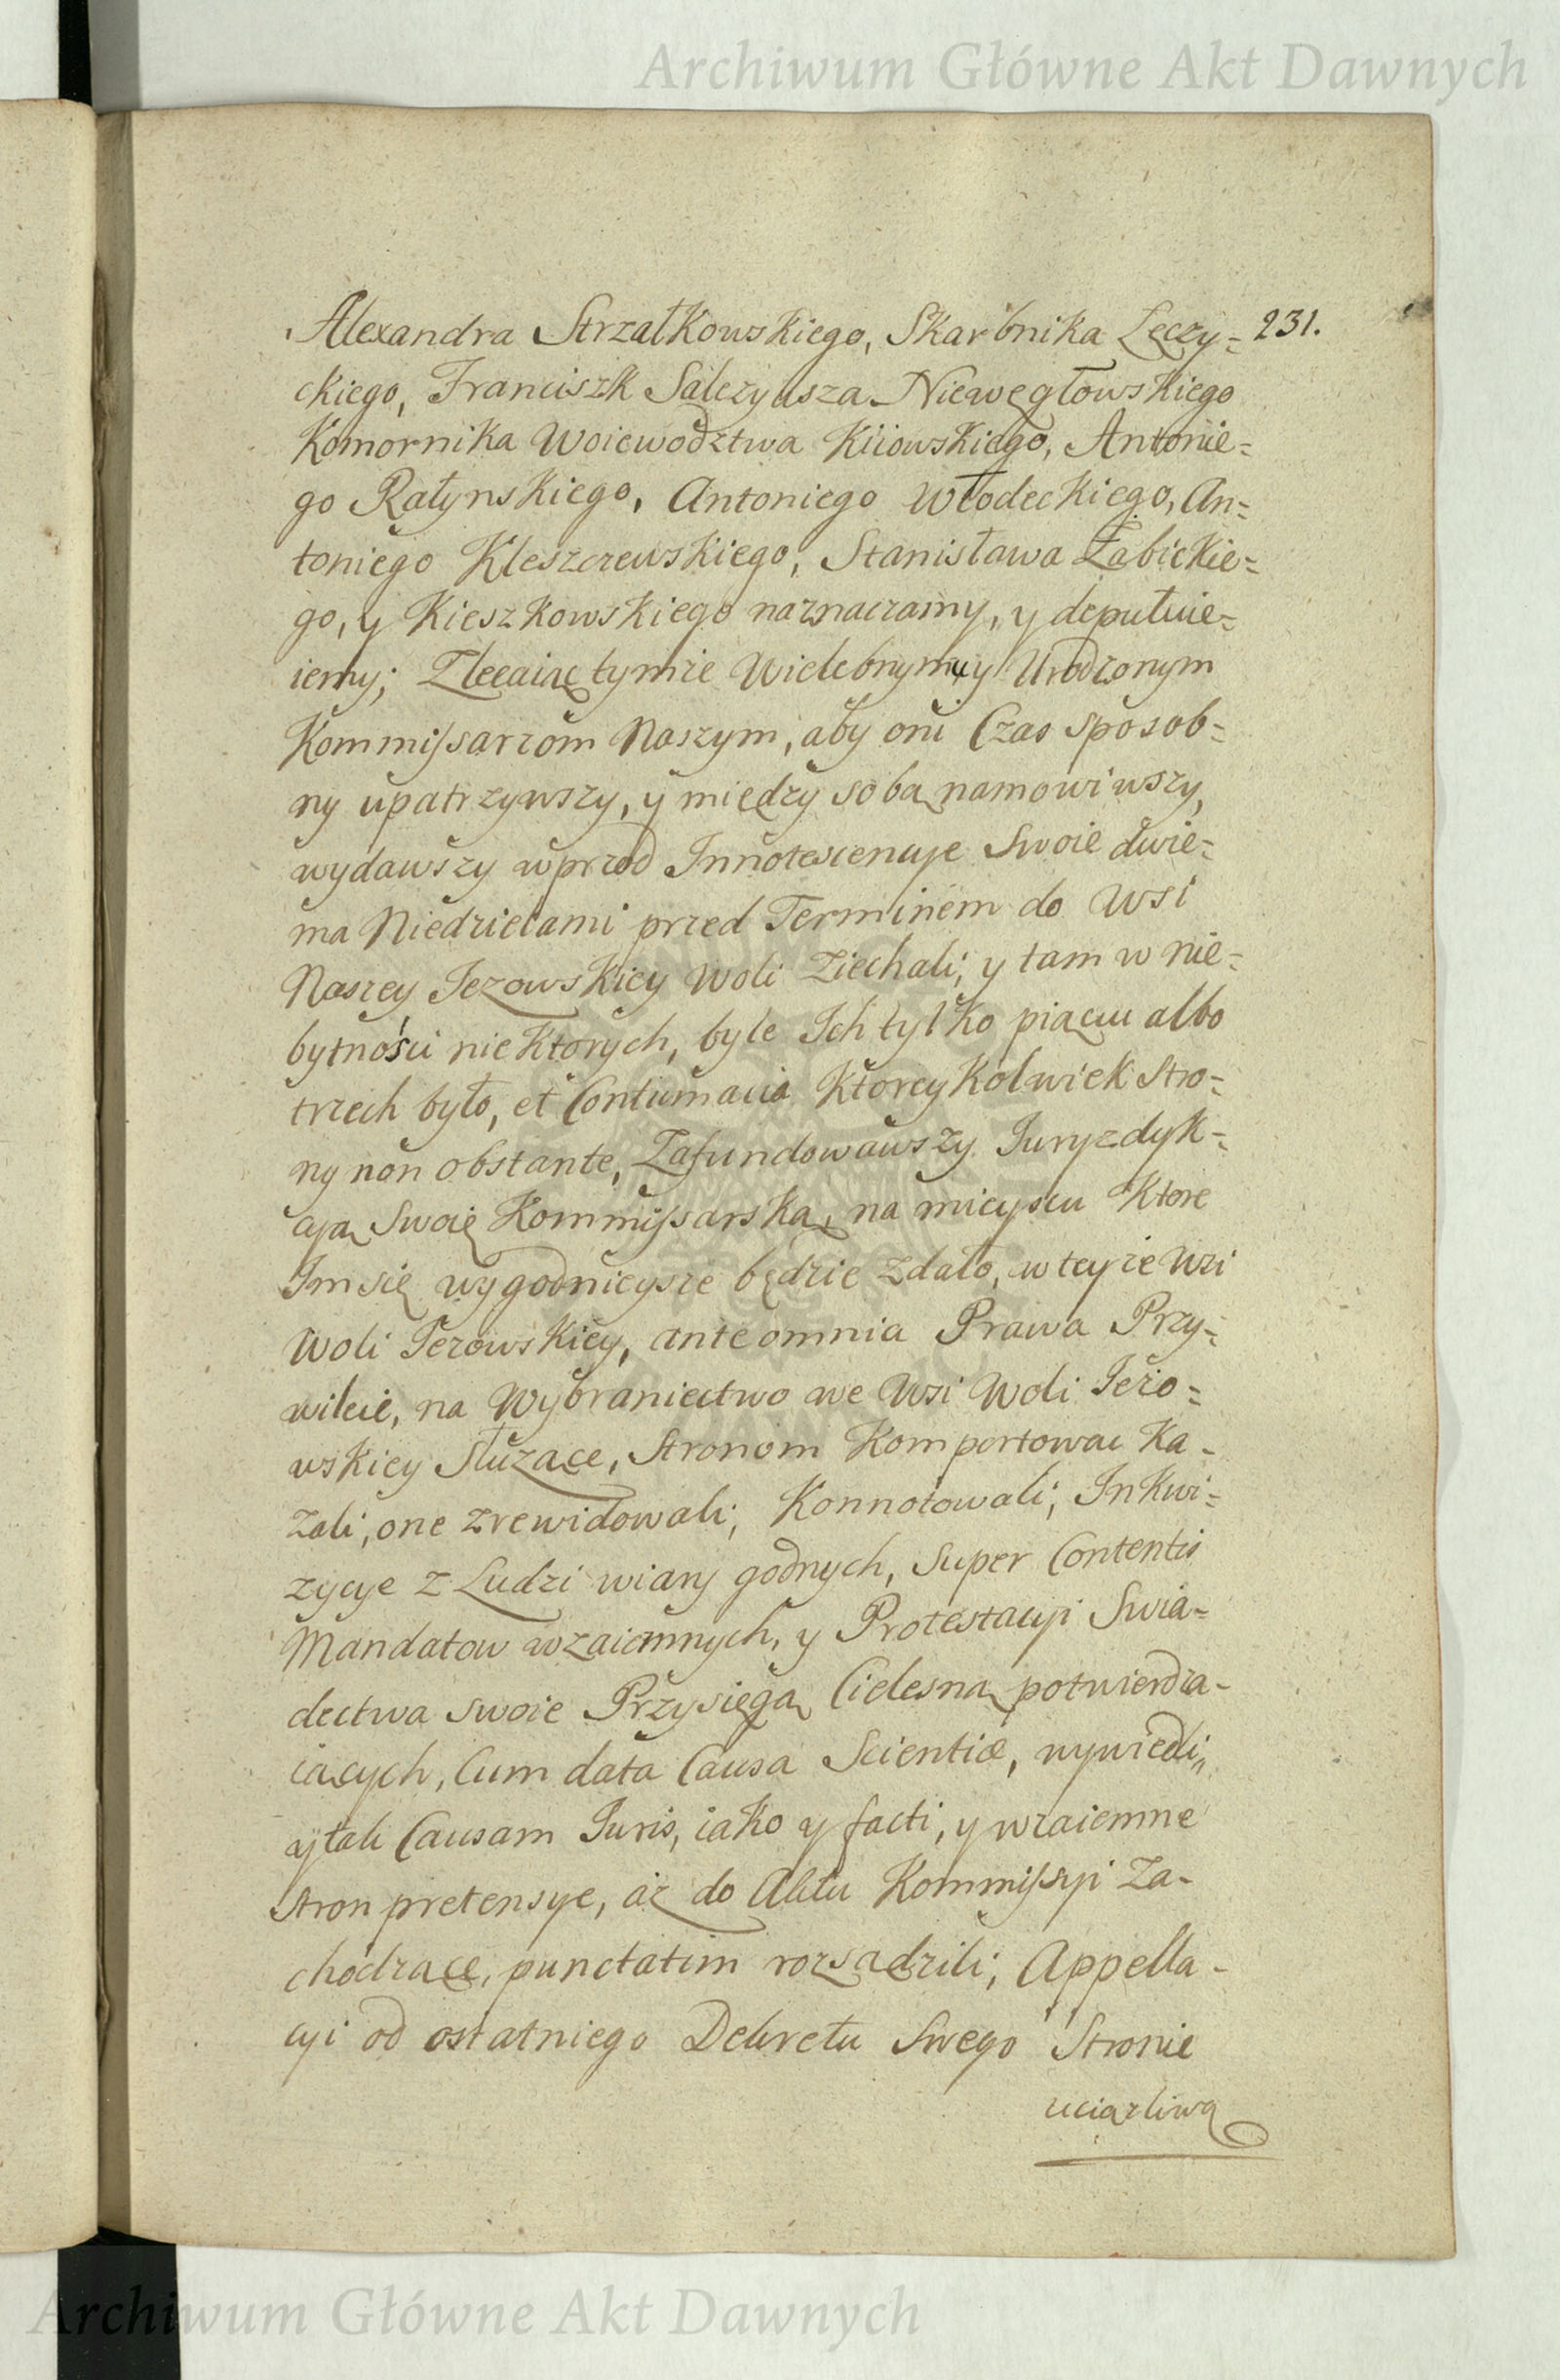 Archiwum Główne Akt Dawnych
Alexandra Strzałkowskiego, Skarbnika Lęczy= 231.
ckiego, Franciszk Salezyusza Niewęgłowskiego
Komornika Woiewodztwa Kiiowskiego, Antonie=
go Ratynskiego, Antoniego Włodeckiego, An=
toniego Kleszczewskiego, Stanisława Łabickie=
go, y Kieszkowskiego naznaczamy, y deputuie=
iemy; Zlecaiąc tymże Wielebnym y Urodzonym
Kommissarzom Naszym, aby oni Czas sposob=
ny upatrzywszy, y między sobą namowiwszy,
wydawszy wprzod Innotescencye Swoie dwie=
ma Niedzielami przed Terminem do Wsi
Naszey Jezowskiey Woli Ziechali; y tam w nie=
bytności niektorych, byle Ich tylko piąciu albo
trzech było, et Contumacia Ktoreykolwiek Stro=
ny non obstante, Zafundowawszy Juryzdyk=
cyą Swoię Kommissarską, na mieyscu Ktore
Im się wygodnieysze będzie zdało, w teyże Wsi
Woli Jezowskiey, ante omnia Prawa Przy=
wileie, na Wybraniectwo we Wsi Woli Jeżo=
wskiey Służące, Stronom Komportowac Ka-
zali, one zrewidowali; Konnotowali; Inkwi=
zycye z Ludzi wiary godnych, Super Contentis
Mandatow wzaiemnych, y Protestacyi Swia=
dectwa swoie Przysięgą Cielesną potwierdza-
iących, Cum data Causa Scientiæ, wywiedli,
a tak Causam Juris, iako y facti, y wzaiemne
stron pretensye, aż do Aktu Kommissyi Za-
chodzące, punctatim rozsądzili; Appella-
cyi od ostatniego Dekretu Swego Stronie
uciążliwą
Archiwum Główne Akt Dawnych